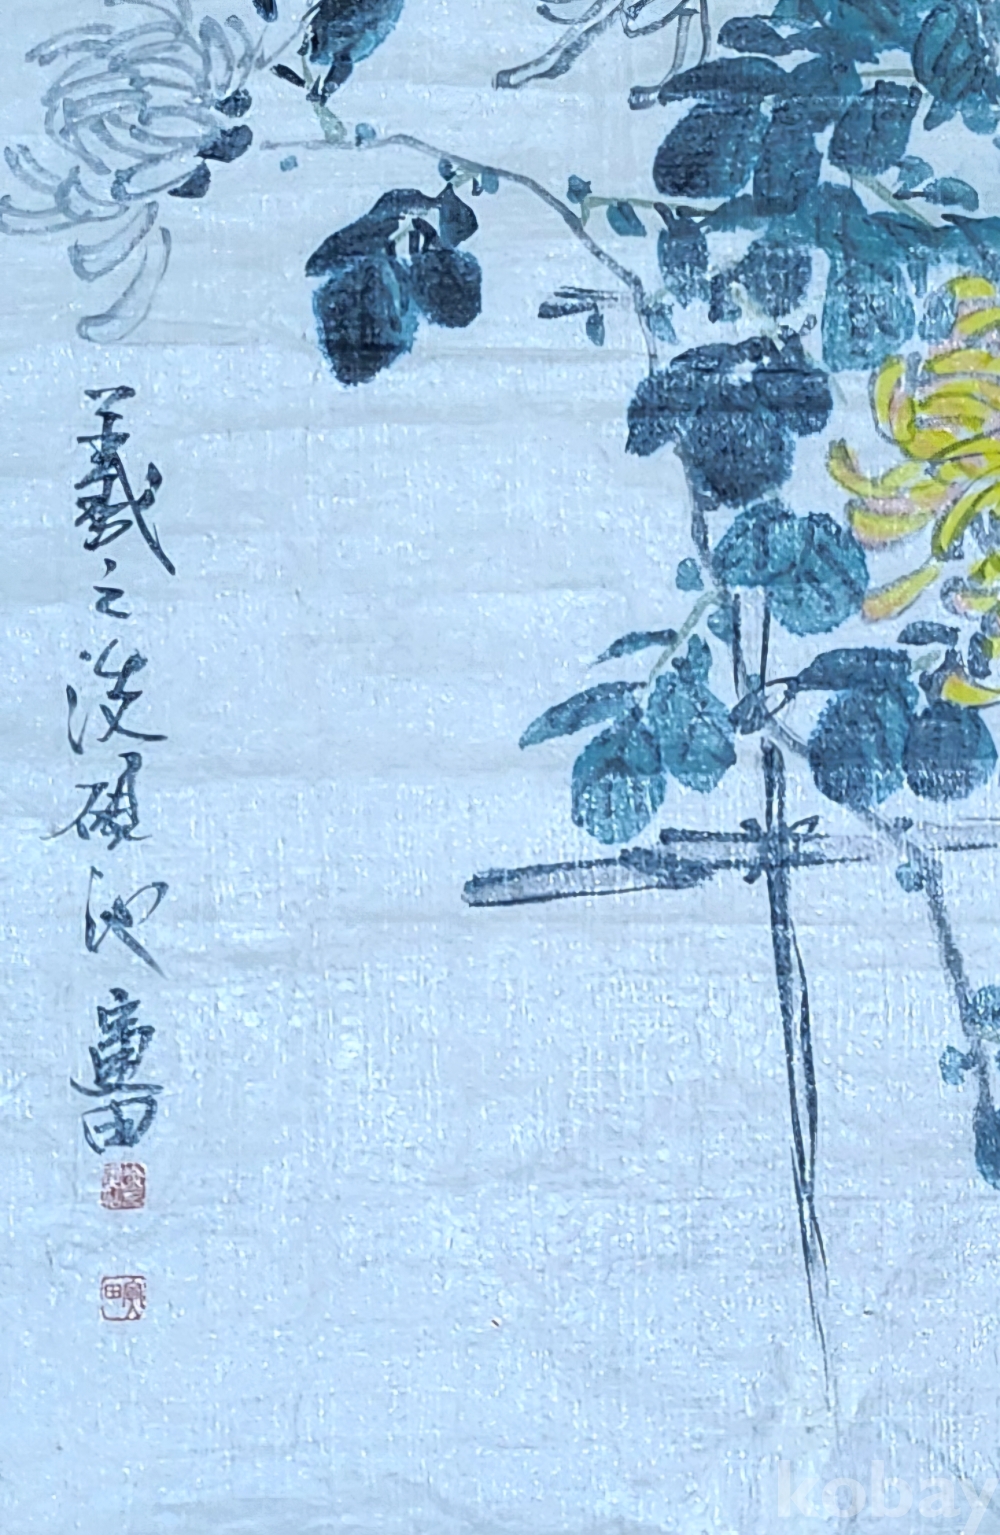 羲之洗硯池
田
kobay